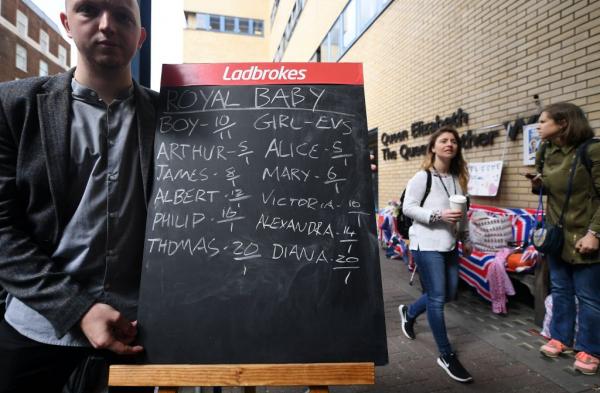 Ladbrokes
ROYAL BABY
BOY - 10/11 GIRL - EVS
ARTHUR - 5/1 ALICE - 5/1
JAMES - 8/1 MARY - 6/1
ALBERT - 12/1 VICTORIA - 10/1
PHILIP - 16/1 ALEXANDRA - 14/1
THOMAS - 20/1 DIANA - 20/1
Queen Elizabeth
The Queen